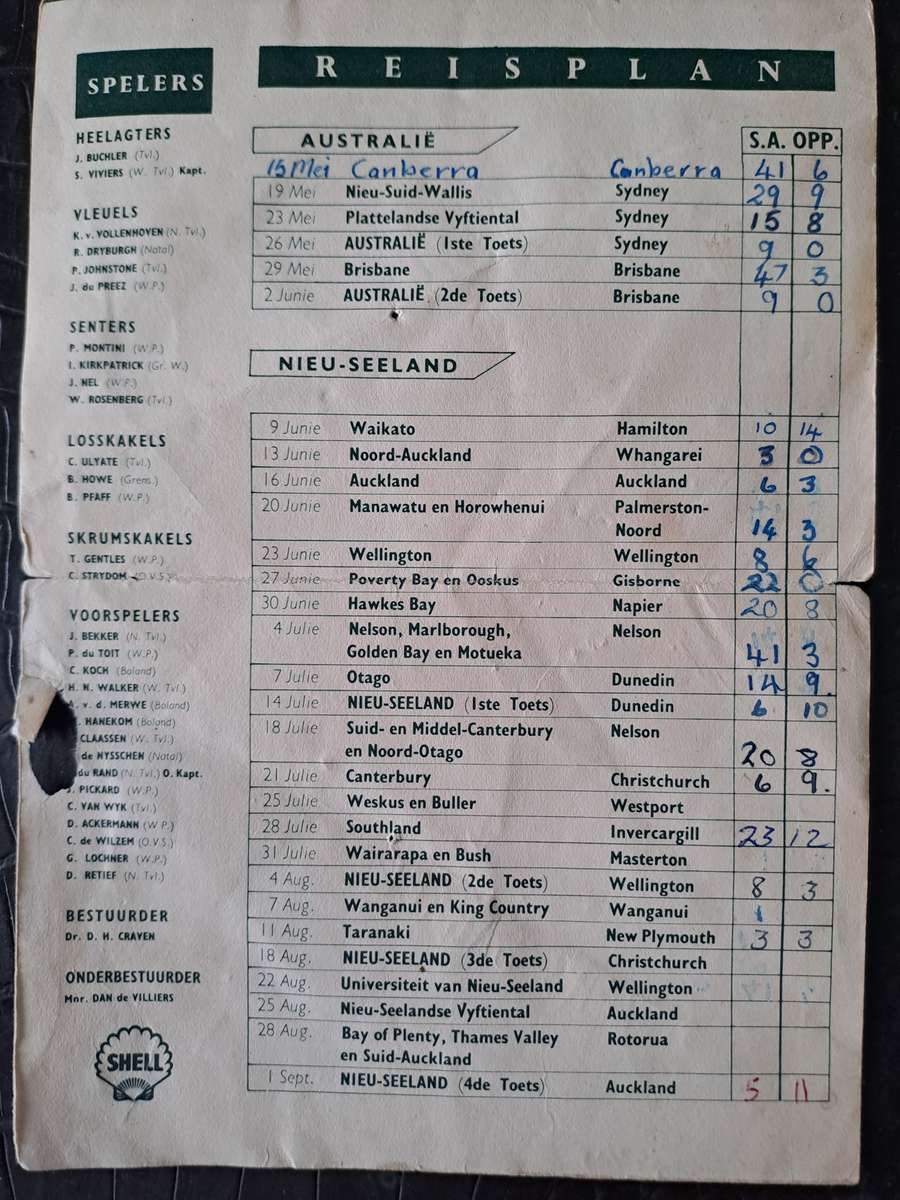 SPELERS
HEELAGTERS
J. BUCHLER (Tvl.)
S. VIVIERS (W. Tvl.) Kapt.
VLEUELS
K. v. VOLLENHOVEN (N. Tvl.)
R. DRYBURGH (Natal)
P. JOHNSTONE (Tvl.)
J. du PREEZ (W.P.)
SENTERS
P. MONTINI (W.P.)
I. KIRKPATRICK (Gr. W.)
J. NEL (W.P.)
W. ROSENBERG (Tvl.)
LOSSKAKELS
C. ULYATE (Tvl.)
B. HOWE (Grens.)
B. PFAFF (W.P.)
SKRUMSKAKELS
T. GENTLES (W.P.)
C. STRYDOM (O.V.S.)
VOORSPELERS
J. BEKKER (N. Tvl.)
P. du TOIT (W.P.)
C. KOCH (Boland)
H. N. WALKER (W. Tvl.)
v. d. MERWE (Boland)
HANEKOM (Boland)
CLAASSEN (W. Tvl.)
de NYSSCHEN (Natal)
du RAND (N. Tvl.) O. Kapt.
J. PICKARD (W.P.)
C. VAN WYK (Tvl.)
D. ACKERMANN (W.P.)
C. de WILZEM (O.V.S.)
G. LOCHNER (W.P.)
D. RETIEF (N. Tvl.)
BESTUURDER
Dr. D. H. CRAVEN
ONDERBESTUURDER
Mnr. DAN de VILLIERS
SHELL
REISPLAN
AUSTRALIË S.A. OPP.
15 Mei Canberra Canberra 41 6
19 Mei Nieu-Suid-Wallis Sydney 29 9
23 Mei Plattelandse Vyftiental Sydney 15 8
26 Mei AUSTRALIË (1ste Toets) Sydney 9 0
29 Mei Brisbane Brisbane 47 3
2 Junie AUSTRALIË (2de Toets) Brisbane 9 0
NIEU-SEELAND
9 Junie Waikato Hamilton 10 14
13 Junie Noord-Auckland Whangarei 3 0
16 Junie Auckland Auckland 6 3
20 Junie Manawatu en Horowhenui Palmerston-
Noord 14 3
23 Junie Wellington Wellington 8 6
27 Junie Poverty Bay en Ooskus Gisborne 22 0
30 Junie Hawkes Bay Napier 20 8
4 Julie Nelson, Marlborough, Nelson
Golden Bay en Motueka 41 3
7 Julie Otago Dunedin 14 9
14 Julie NIEU-SEELAND (1ste Toets) Dunedin 6 10
18 Julie Suid- en Middel-Canterbury Nelson
en Noord-Otago 20 8
21 Julie Canterbury Christchurch 6 9.
25 Julie Weskus en Buller Westport
28 Julie Southland Invercargill 23 12
31 Julie Wairarapa en Bush Masterton
4 Aug. NIEU-SEELAND (2de Toets) Wellington 8 3
7 Aug. Wanganui en King Country Wanganui
11 Aug. Taranaki New Plymouth 3 3
18 Aug. NIEU-SEELAND (3de Toets) Christchurch
22 Aug. Universiteit van Nieu-Seeland Wellington
25 Aug. Nieu-Seelandse Vyftiental Auckland
28 Aug. Bay of Plenty, Thames Valley Rotorua
en Suid-Auckland
1 Sept. NIEU-SEELAND (4de Toets) Auckland 5 11